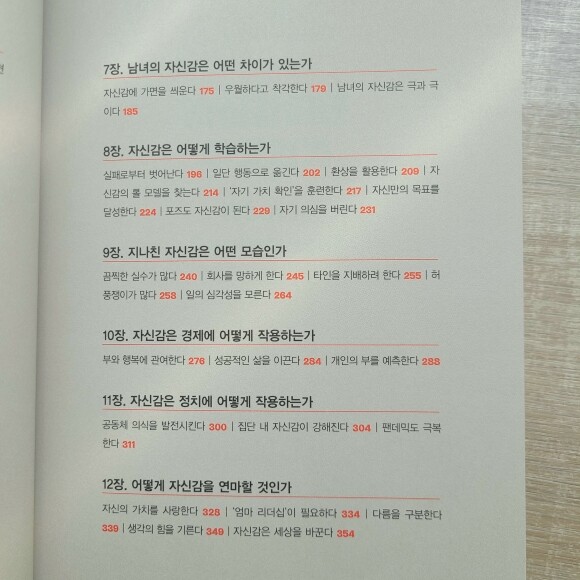 7장. 남녀의 자신감은 어떤 차이가 있는가
자신감에 가면을 씌운다 175 | 우월하다고 착각한다 179 | 남녀의 자신감은 극과 극
이다 185
8장. 자신감은 어떻게 학습하는가
실패로부터 벗어난다 196 | 일단 행동으로 옮긴다 202 | 환상을 활용한다 209 | 자
신감의 롤 모델을 찾는다 214 | '자기 가치 확인'을 훈련한다 217 | 자신만의 목표를
달성한다 224 | 포즈도 자신감이 된다 229 | 자기 의심을 버린다 231
9장. 지나친 자신감은 어떤 모습인가
끔찍한 실수가 많다 240 | 회사를 망하게 한다 245 | 타인을 지배하려 한다 255 | 허
풍쟁이가 많다 258 | 일의 심각성을 모른다 264
10장. 자신감은 경제에 어떻게 작용하는가
부와 행복에 관여한다 276 | 성공적인 삶을 이끈다 284 | 개인의 부를 예측한다 288
11장. 자신감은 정치에 어떻게 작용하는가
공동체 의식을 발전시킨다 300 | 집단 내 자신감이 강해진다 304 | 팬데믹도 극복
한다 311
12장. 어떻게 자신감을 연마할 것인가
자신의 가치를 사랑한다 328 | '엄마 리더십'이 필요하다 334 | 다름을 구분한다
339 | 생각의 힘을 기른다 349 | 자신감은 세상을 바꾼다 354